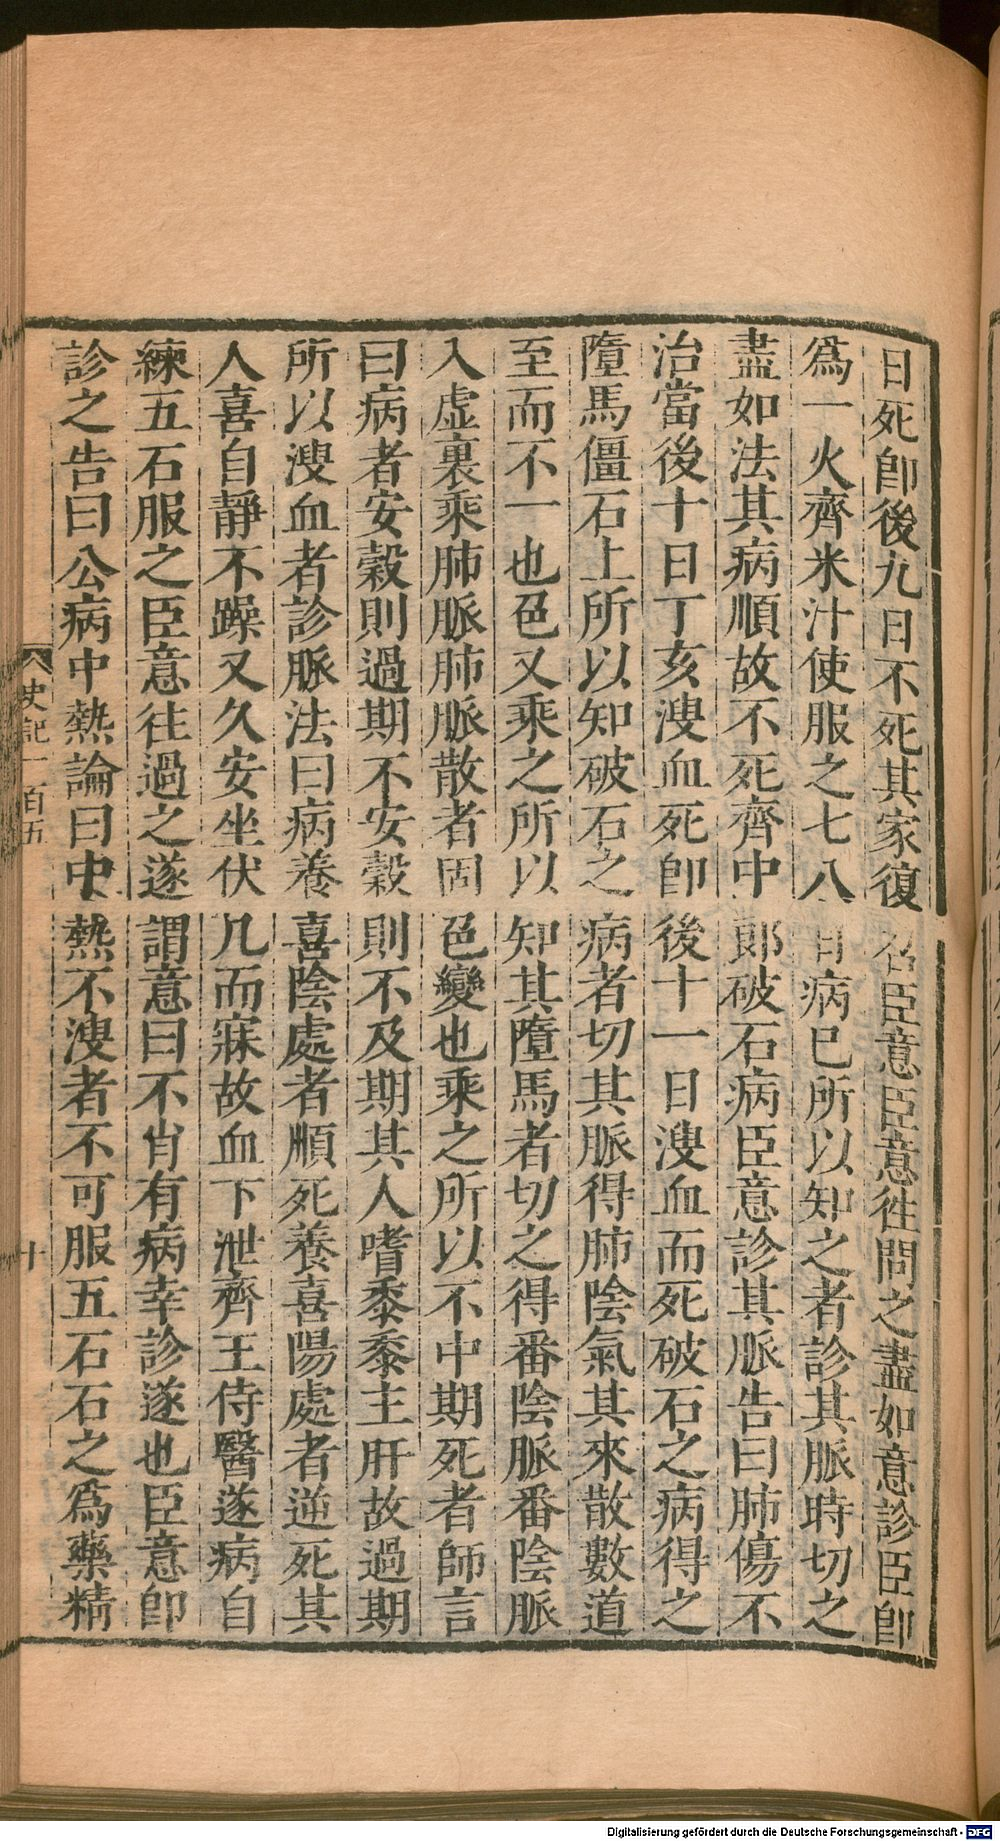 日死卽後九日不死其家復召臣意臣意徃問之盡如意診臣卽
爲一火齊米汁使服之七八日病已所以知之者診其脈時切之
盡如法其病順故不死齊中郞破石病臣意診其脈告曰肺傷不
治當後十日丁亥溲血死卽後十一日溲血而死破石之病得之
墮馬僵石上所以知破石之病者切其脈得肺陰氣其來散數道
至而不一也色又乘之所以知其墮馬者切之得番陰脈番陰脈
入虛裏乘肺脈肺脈散者固色變也乘之所以不中期死者師言
曰病者安穀則過期不安穀則不及期其人嗜黍黍主肝故過期
所以溲血者診脈法曰病養喜陰處者順死養喜陽處者逆死其
人喜自靜不躁又久安坐伏几而寐故血下泄齊王侍醫遂病自
練五石服之臣意往過之遂謂意曰不肖有病幸診遂也臣意卽
診之告曰公病中熱論曰中熱不溲者不可服五石石之爲藥精
史記一百五
十
Digitalisierung gefördert durch die Deutsche Forschungsgemeinschaft - DFG